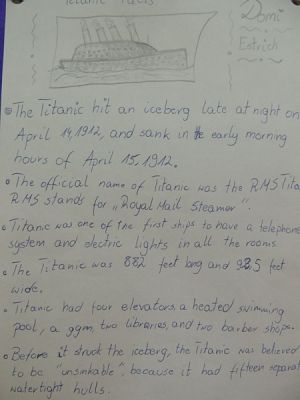 Titanic Facts
Domi
Estrich
The Titanic hit an iceberg late at night on
April 14, 1912, and sank in the early morning
hours of April 15, 1912.
The official name of Titanic was the RMS Tita
RMS stands for „Royal Mail Steamer".
Titanic was one of the first ships to have a telephone
system and electric lights in all the rooms
The Titanic was 882 feet long and 92.5 feet
wide.
Titanic had four elevators, a heated swimming
pool, a gym two libraries, and two barber shops.
Before it struck the iceberg, the Titanic was believed
to be "unsinkable", because it had fifteen separat
watertight hulls.